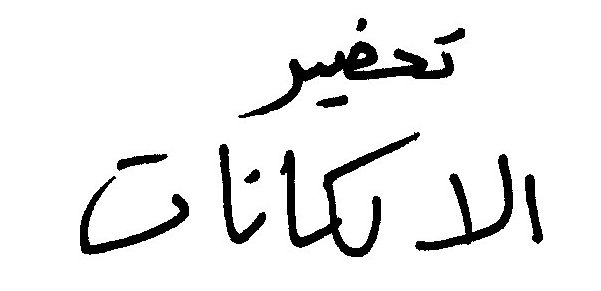 تحضير
الامكانات